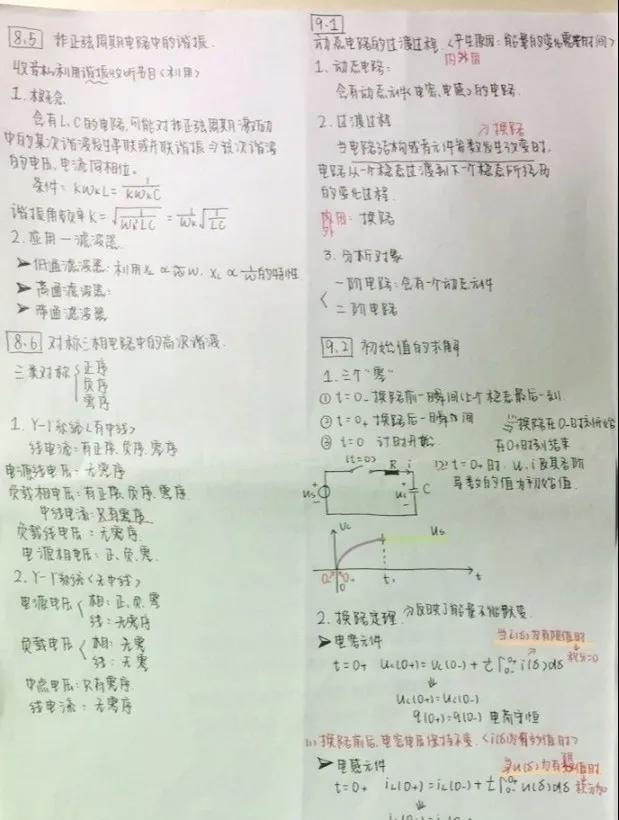 8.5 非正弦周期电路中的谐振.
收音机利用谐振收听节目(利用)
1. 概念
含有L.C的电路,可能对非正弦周期激励
中的某次谐波发生串联或并联谐振 该次谐波
的电压,电流同相位。
条件: KWₖL = 1/KWₖC
谐振角频率K = √(1/Wₖ²LC) = 1/Wₖ √(1/LC)
2. 应用 — 滤波器
➤低通滤波器: 利用 ∝ W. ∝ 的特性
➤高通滤波器:
➤带通滤波器
8.6 对称三相电路中的高次谐波.
三类对称 正序
负序
零序
1. Y-Y系统(有中线)
线电流: 有正序.负序.零序
电源线电压: 无零序
负载相电压: 有正序.负序.零序
中线电流: 只有零序
负载线电压: 无零序
电源相电压: 正.负.零
2. Y-Y系统(无中线)
电源电压 相: 正.负.零
线: 无零序
负载电压 相: 无零
线: 无零
中点电压: 只有零序
线电流: 无零序
9.1
动态电路的过渡过程 (产生原因: 能量的变化需要时间)
内外因
1. 动态电路:
含有动态元件(电容,电感)的电路.
2. 过渡过程
换路
当电路结构或者元件参数发生改变时,
电路从一个稳态过渡到下一个稳态所经历
的变化过程.
内因: 换路
外
3. 分析对象
一阶电路: 含有一个动态元件
二阶电路
9.2 初始值的求解
1. 三个"零"
① t=0- 换路前一瞬间 上个稳态最后一刻
② t=0+ 换路后一瞬间
换路在0-时刻开始
③ t=0 计时开始
在0+时刻结束
(t=0) R i
t=0+时. u, i 及其各阶
导数的值为初始值.
us + - uc + - C
uc us
0- 0+ 0 t₁ t
2. 换路定理. 反映了能量不能跃变.
➤电容元件
当i(δ)为有限值时
积分=0
t=0+ uc(0+) = uc(0-) + 1/C ∫0-0+ i(δ)dδ
uc(0+) = uc(0-)
q(0+) = q(0-) 电荷守恒
(1) 换路前后, 电容电压保持不变. (i(δ)为有限值时)
➤电感元件
当u(δ)为有限值时
t=0+ iL(0+) = iL(0-) + 1/L ∫0-0+ u(δ)dδ